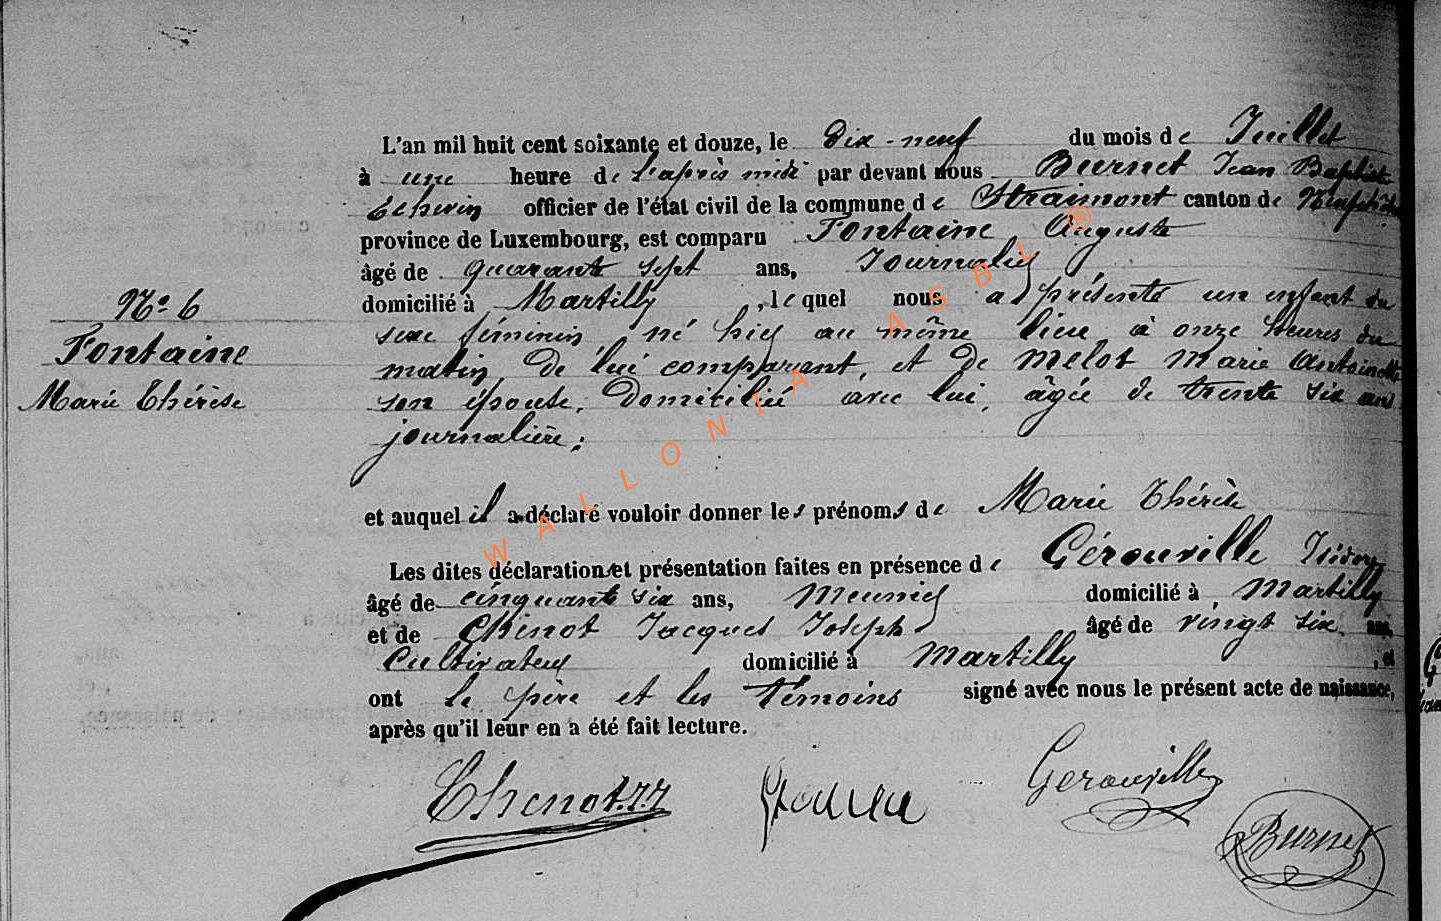 L'an mil huit cent soixante et douze, le Dix-neuf du mois de Juillet
à une heure de l'après midi par devant nous Burnet Jean Baptiste
Echevin officier de l'état civil de la commune de Straimont canton de Neufchâteau
province de Luxembourg, est comparu Fontaine Auguste
âgé de quarante sept ans, Journalier
domicilié à Martilly, lequel nous a présenté un enfant du
sexe féminin, né hier au même lieu à onze heures du
matin, de lui comparant, et de Melot Marie Antoinette
son épouse, domiciliée avec lui, âgée de trente six ans
journalière;
N° 6
Fontaine
Marie Thérèse
et auquel il a déclaré vouloir donner les prénoms de Marie Thérèse
Les dites déclaration et présentation faites en présence de Gérouville Isidore
âgé de cinquante six ans, Meunier domicilié à Martilly
et de Chenot Jacques Joseph âgé de vingt six ans,
Cultivateur domicilié à Martilly, et
ont le père et les témoins signé avec nous le présent acte de naissance,
après qu'il leur en a été fait lecture.
Chenot. J. J. Gerouville
Burnet
WALLONIA ASBL ®